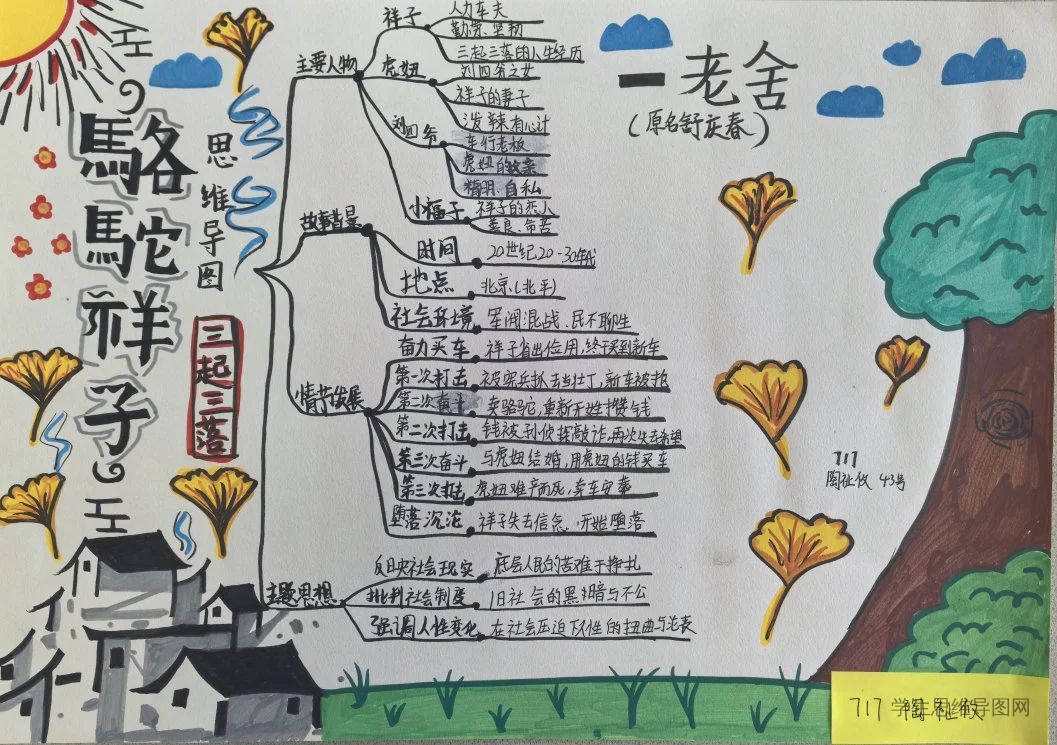 駱駝祥子
思维导图
三起三落
一老舍
(原名舒庆春)
主要人物
祥子
人力车夫
勤劳、坚韧
三起三落的人生经历
虎妞
刘四爷之女
祥子的妻子
泼辣有心计
刘四爷
车行老板
虎妞的父亲
精明、自私
小福子
祥子的恋人
善良、命苦
故事背景
时间
20世纪20-30年代
地点
北京(北平)
社会环境
军阀混战、民不聊生
情节发展
奋力买车
祥子省出位用,终于买到新车
第一次打击
被宪兵抓去当壮丁,新车被抢
第二次奋斗
卖骆驼,重新开始攒钱
第二次打击
钱被孙侦探敲诈,再次失去希望
第三次奋斗
与虎妞结婚,用虎妞的钱买车
第三次打击
虎妞难产而死,卖车安葬
堕落沉沦
祥子失去信念,开始堕落
主题思想
反映社会现实
底层人民的苦难于挣扎
批判社会制度
旧社会的黑暗与不公
强调人性变化
在社会压迫下人性的扭曲与沦丧
717
43号
717
学生思维导图网